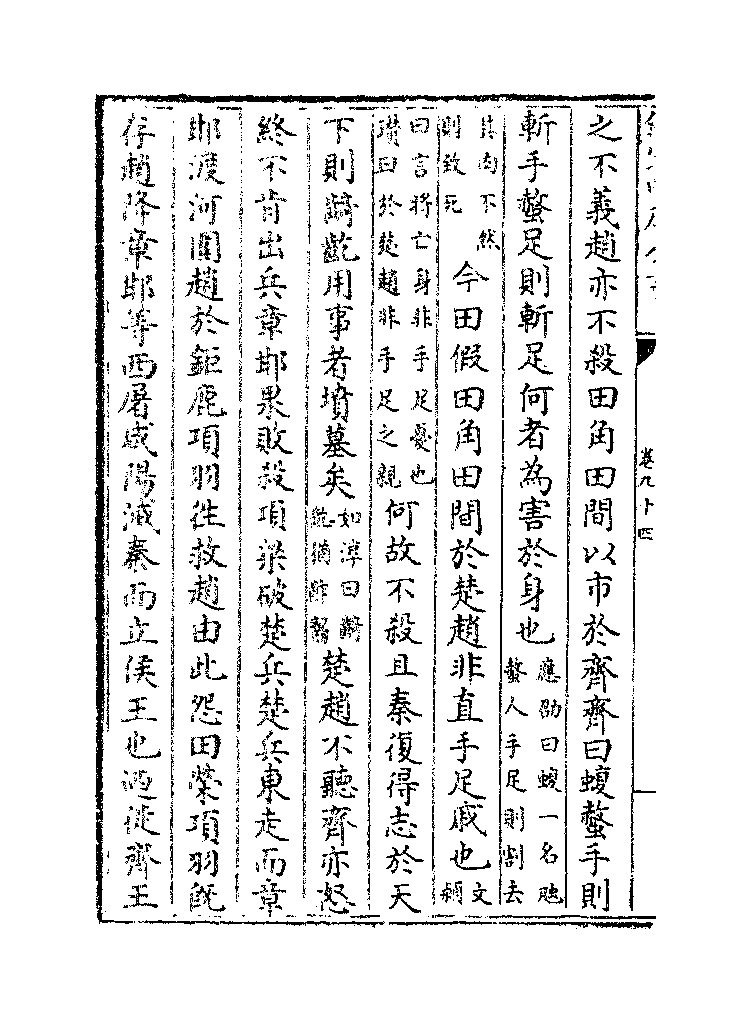 卷九十四
之不義趙亦不殺田角田間以市於齊齊曰蝮螫手則
斬手螫足則斬足何者為害於身也應劭曰蝮一名虺螫人手足則割去
其肉不然則致死今田假田角田間於楚趙非直手足戚也文穎
曰言將亡身非手足憂也瓚曰於楚趙非手足之親何故不殺且秦復得志於天
下則齮齕用事者墳墓矣如淳曰齮齕猶齚齧楚趙不聽齊亦怒
終不肯出兵章邯果敗殺項梁破楚兵楚兵東走而章
邯渡河圍趙於鉅鹿項羽徃救趙由此怨田榮項羽既
存趙降章邯等西屠咸陽滅秦而立侯王也迺徙齊王